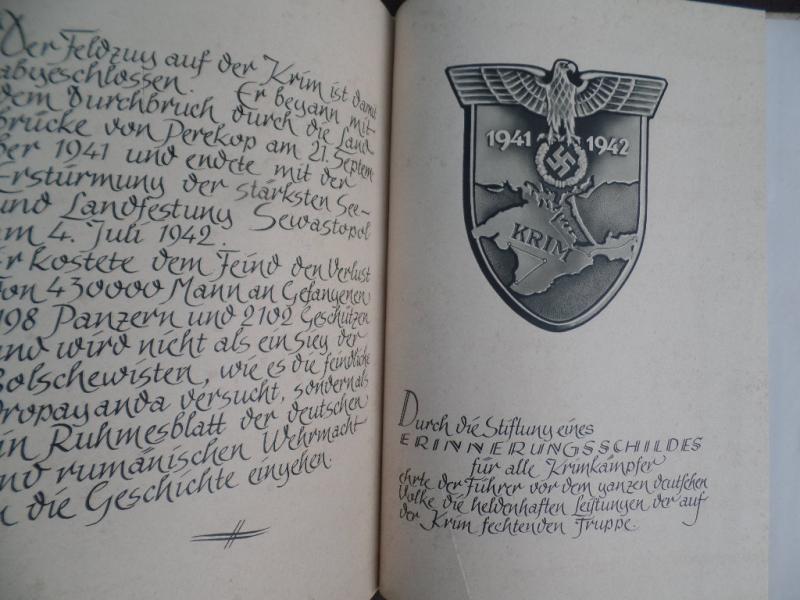 Der Feldzug auf der Krim ist damit
abgeschlossen. Er begann mit
dem Durchbruch durch die Land
brücke von Perekop am 21. Septem
ber 1941 und endete mit der
Erstürmung der stärksten See-
und Landfestung Sewastopol
am 4. Juli 1942.
Er kostete dem Feind den Verlust
von 430000 Mann an Gefangenen
198 Panzern und 2102 Geschützen
und wird nicht als ein Sieg der
Bolschewisten, wie es die feindliche
Propaganda versucht, sondern als
ein Ruhmesblatt der deutschen
und rumänischen Wehrmacht
in die Geschichte eingehen.
1941 1942
KRIM
Durch die Stiftung eines
ERINNERUNGSSCHILDES
für alle Krimkämpfer
ehrte der Führer vor dem ganzen deutschen
Volke die heldenhaften Leistungen der auf
der Krim fechtenden Truppe.